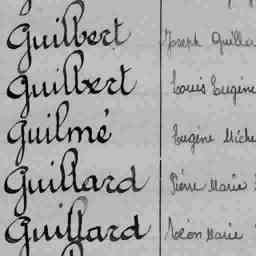 Guilbert Joseph Guilla
Guilbert Louis Eugène
Guilmé Eugène Miche
Guillard Pierre Marie
Guillard Léon Marie